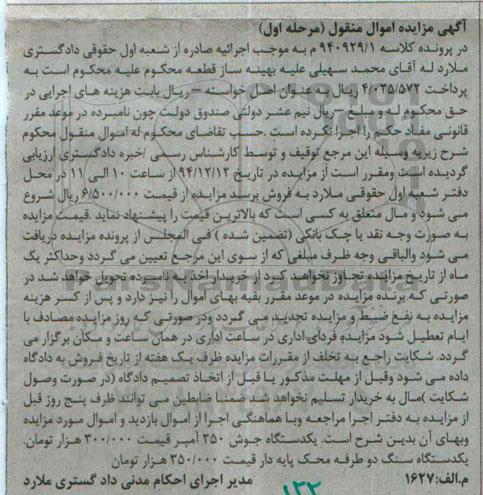 آگهی مزایده اموال منقول (مرحله اول)
در پرونده کلاسه ۹۴۰۹۲۹/۱ م به موجب اجرائیه صادره از شعبه اول حقوقی دادگستری
ملارد له آقای محمد سهیلی علیه بهینه ساز قطعه محکوم علیه محکوم است به
پرداخت ۴/۰۲۵/۵۷۲ ریال به عنوان اصل خواسته – ریال بابت هزینه های اجرایی در
حق محکوم له و مبلغ – ریال نیم عشر دولتی صندوق دولت چون نامبرده در موعد مقرر
قانونی مفاد حکم را اجرا نکرده است .حسب تقاضای محکوم له اموال منقول محکوم
شرح زیربه وسیله این مرجع توقیف و توسط کارشناس رسمی /خبره دادگستری ارزیابی
گردیده است ومقرر است از مزایده در تاریخ ۹۴/۱۲/۱۲ از ساعت ۱۰ الی ۱۱ در محل
دفتر شعبه اول حقوقی ملارد به فروش برسد مزایده از قیمت ۶/۵۰۰/۰۰۰ ریال شروع
می شود و مال متعلق به کسی است که بالاترین قیمت را پیشنهاد نماید .قیمت مزایده
به صورت وجه نقد یا چک بانکی (تضمین شده ) فی المجلس از پرونده مزایده دریافت
می شود والباقی وجه ظرف مبلغی که از سوی این مرجع تعیین می گردد وحداکثر یک
ماه از تاریخ مزایده تجاوز نخواهد کرد از خریدار اخذ به نامبرده تحویل خواهد شد در
صورتی که برنده مزایده در موعد مقرر بقیه بهای اموال را نیز دارد و پس از کسر هزینه
مزایده به نفع ضبط و مزایده تجدید می گردد ودر صورتی که روز مزایده مصادف با
ایام تعطیل شود مزایده فردای اداری در ساعت اداری در همان ساعت و مکان برگزار می
گردد. شکایت راجع به تخلف از مقررات مزایده ظرف یک هفته از تاریخ فروش به دادگاه
داده می شود وقبل از مهلت مذکور یا قبل از اتخاذ تصمیم دادگاه (در صورت وصول
شکایت )مال به خریدار تسلیم نخواهد شد ضمنا ضابطین می توانند ظرف پنج روز قبل
از مزایده به دفتر اجرا مراجعه وبا هماهنگی اجرا از اموال بازدید و اموال مورد مزایده
وبهای آن بدین شرح است. یکدستگاه جوش ۲۵۰ آمپر قیمت ۳۰۰/۰۰۰ هزار تومان.
یکدستگاه سنگ دو طرفه محک پایه دار قیمت ۳۵۰/۰۰۰ هزار تومان
م.الف:۱۶۲۷ مدیر اجرای احکام مدنی داد گستری ملارد
۱۳۲
ParsNamadData